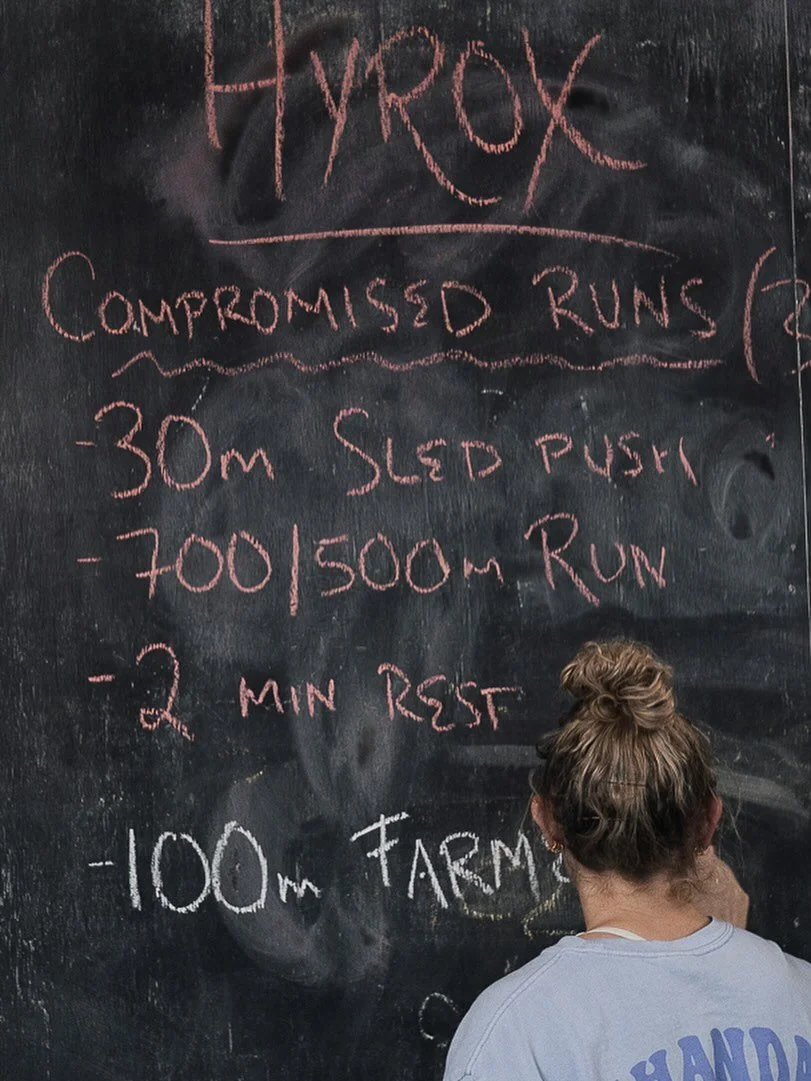 HYROX
COMPROMISED RUNS (
-30m SLED PUSH
-700/500m RUN
-2 MIN REST
-100m FARM
HANDA